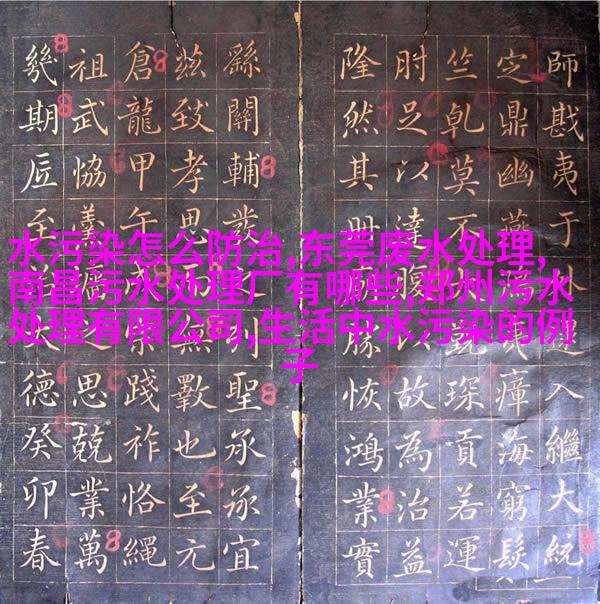 水污染怎么防治,东莞废水处理,
南昌污水处理厂有哪些,郑州污水
处理有限公司,生活中水污染的例
子
師戡夷于入繼大統
定鼎幽燕瘴海窮髮
竺乾莫不琛貢若運
肘足以達腹以故為治益
隆然其明恢鴻業實
繇關輔發聖承承宜
茲致孝思無斁也至元
倉龍甲午踐祚恪繩
祖武協思兢業萬
幾期匠至德癸卯春